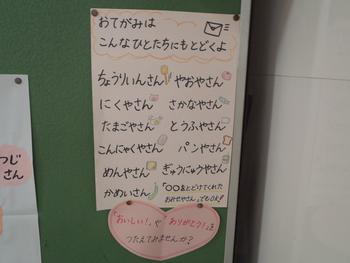 おてがみは
こんなひとたちにもとどくよ
ちょうりいんさん やおやさん
にくやさん さかなやさん
たまごやさん とうふやさん
こんにゃくやさん パンやさん
めんやさん ぎゅうにゅうやさん
かめいさん 「〇〇をとどけてくれた
おみせやさん」でもOK!
「おいしい!」や「ありがとう!」を
つたえてみませんか?
つじ
さん